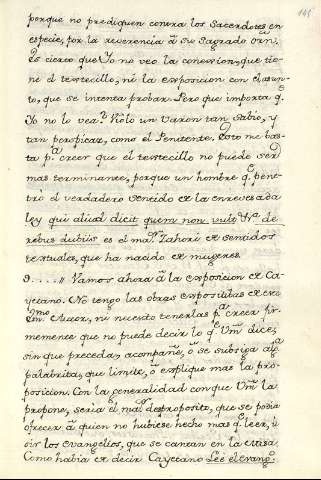 porque no prediquen contra los Sacerdotes en
especie, por la reverencia à su sagrado orn.
Es cierto que Yo no veo la conexion, que tie-
ne el textecillo, ni la exposicion con el asun-
to, que se intenta probar. Pero que importa q.e
Yo no lo vea? Viólo un Varon tan sabio, y
tan perspicaz, como el Penitente. Esto me bas-
ta p.a creer que el textecillo no puede ser
mas terminante, porque un hombre q.e pene-
tró el verdadero sentido de la enrevesada
ley qui aliud dicit quem non vult ff.s de
rebus dubiis es el ma.r Zahori de sentidos
textuales, que ha nacido de mugeres.
9.....// Vamos ahora à la exposicion de Ca-
yetano. No tengo las obras expositibas de este
Em.mo Autor, ni necesito tenerlas p.a creer fir-
memente que no puede decir lo q.e Vm. dice,
sin que preceda, acompañe, ó se subsiga alg.a
palabrita, que limite, ó explique mas la pro-
posicion. Con la generalidad con que Vm. la
propone, seria el ma.r desproposito, que se podia
ofrecer à quien no hubiese hecho mas q.e leer, ú
oir los evangelios, que se cantan en la Missa.
Como habia de decir Cayetano Leé el evang.o